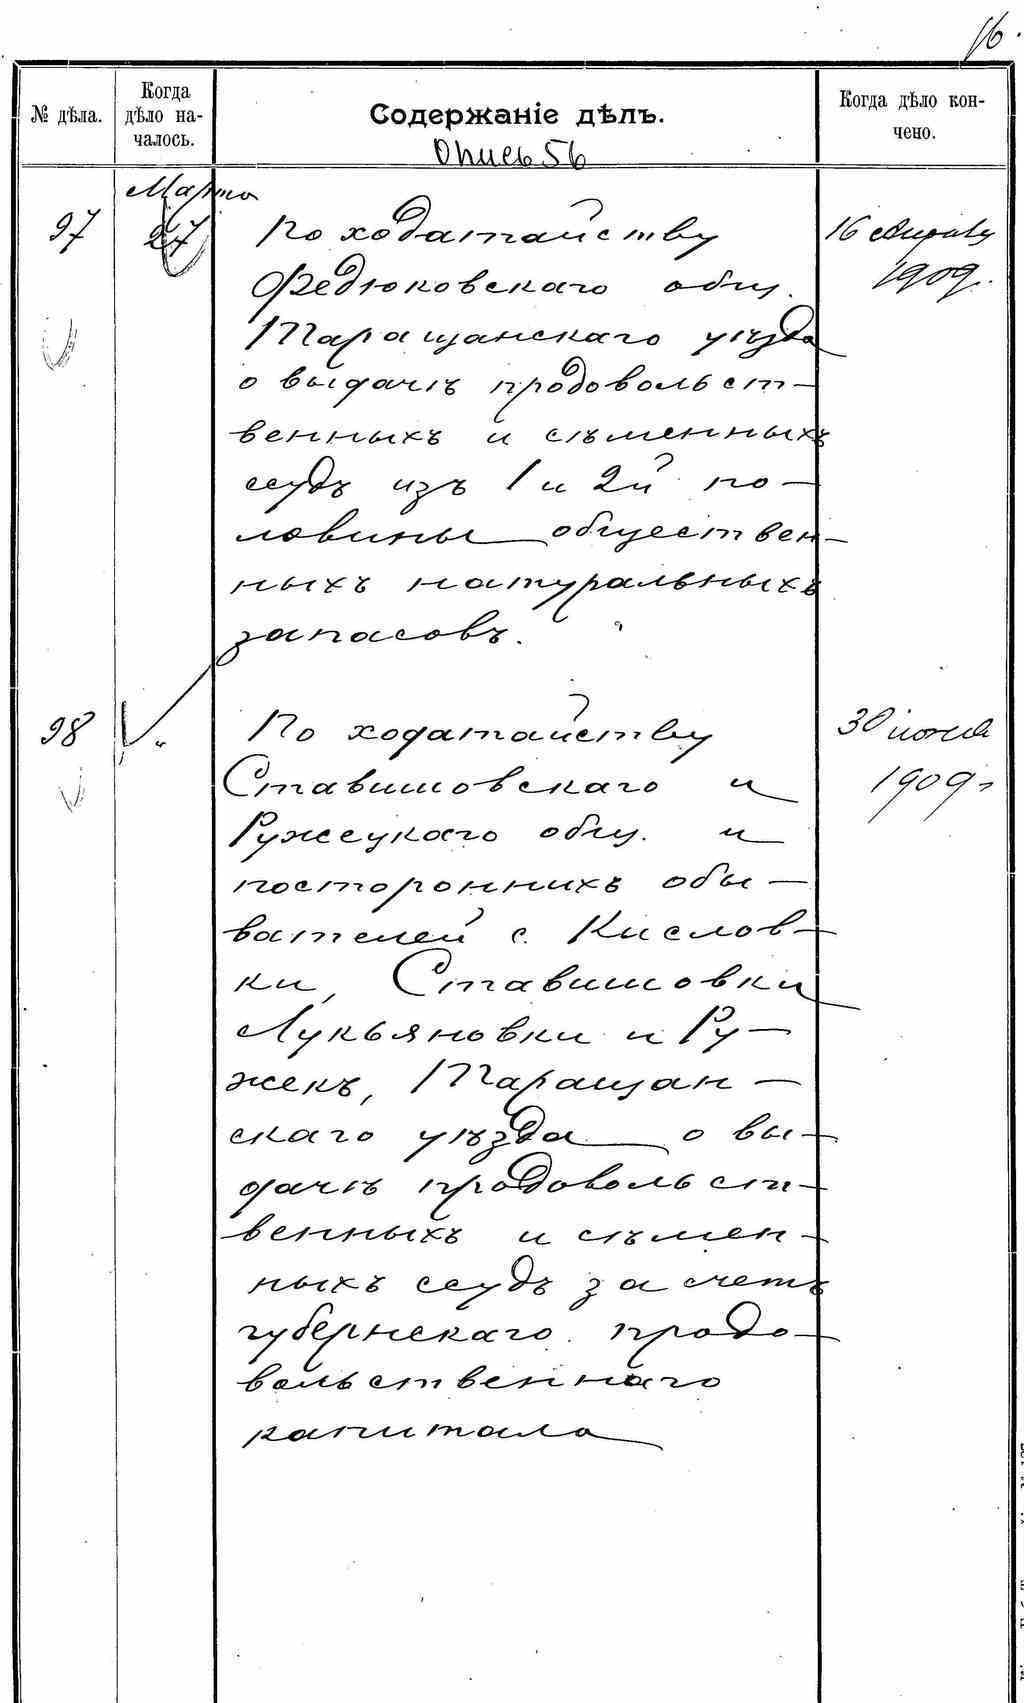 16.
№ дѣла.
Когда
дѣло на-
чалось.
Содержаніе дѣлъ.
Когда дѣло кон-
чено.
Опись 56
Марта
97
27
По ходатайству
Федюковскаго общ.
Таращанскаго уѣзда
о выдачѣ продовольст-
венныхъ и сѣменныхъ
ссудъ изъ 1 и 2й по-
ловины обществен-
ныхъ натуральныхъ
запасовъ.
16
1909.
98
"
По ходатайству
Ставишовскаго и
Ружецкаго общ. и
постороннихъ обы-
вателей с. Кислов-
ки, Ставишовки
Лукьяновки и Ру-
жекъ, Таращан-
скаго уѣзда о вы-
дачѣ продовольст-
венныхъ и сѣмен-
ныхъ ссудъ за счетъ
губернскаго продо-
вольственнаго
капитала
30 іюня
1909 г